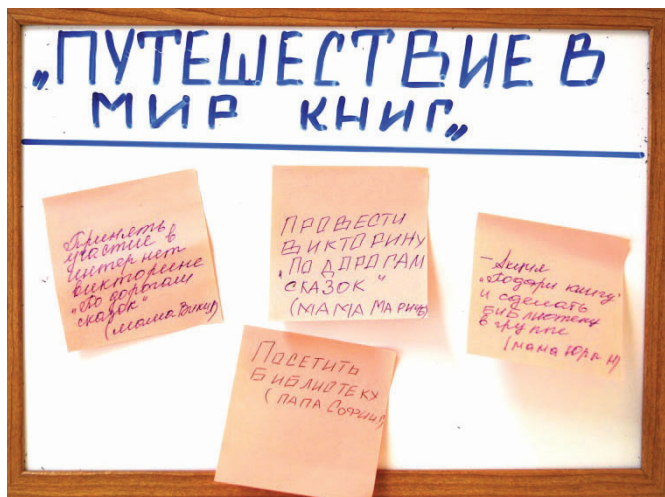 „ПУТЕШЕСТВИЕ В
МИР КНИГ„
Принять
участие в
интернет
викторине
"По дорогам
сказок"
(мама Вики)
ПРОВЕСТИ
ВИКТОРИНУ
„ПО ДОРОГАМ
СКАЗОК"
(МАМА МАРИНЫ)
- Акция
"Подари книгу"
и сделать
библиотеку
в группе
(мама Юры Н)
ПОСЕТИТЬ
БИБЛИОТЕКУ
(ПАПА СОФИИ)